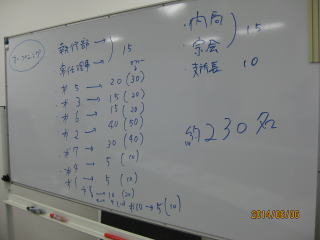 オープニング
執行部 → ) 15
常任理事 →
#5 → 20 (30)
#3 → 15 (20)
#6 → 15 (20)
#2 → 40 (50)
#7 → 30 (40)
#4 → 5 (10)
#1 → 5 (10)
#8 → 10 (20)
→ 5 (10)
・内局 ) 15
・宗会
・支所長 10
約230名
2014/06/06